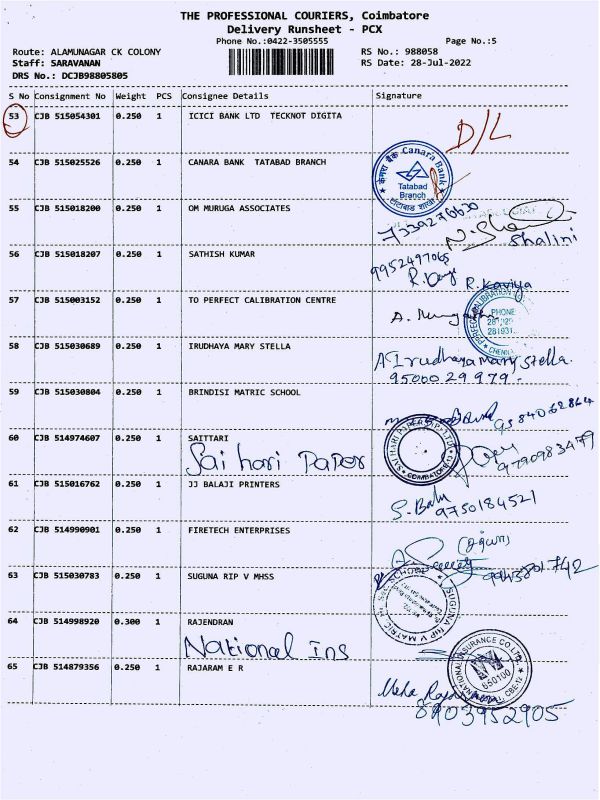 THE PROFESSIONAL COURIERS, Coimbatore
Delivery Runsheet - PCX
Phone No.:0422-3505555 Page No.:5
Route: ALAMUNAGAR CK COLONY RS No.: 988058
Staff: SARAVANAN RS Date: 28-Jul-2022
DRS No.: DCJB98805805
S No Consignment No Weight PCS Consignee Details Signature
53 CJB 515054301 0.250 1 ICICI BANK LTD TECKNOT DIGITA
D/L
54 CJB 515025526 0.250 1 CANARA BANK TATABAD BRANCH
केनरा बैंक Canara Bank
Tatabad
Branch
55 CJB 515018200 0.250 1 OM MURUGA ASSOCIATES
7339276630
Shalini
56 CJB 515018207 0.250 1 SATHISH KUMAR
9952497065
R. Kaviya
57 CJB 515003152 0.250 1 TO PERFECT CALIBRATION CENTRE
PHONE
58 CJB 515030689 0.250 1 IRUDHAYA MARY STELLA
A Irudhaya Mary Stella.
9500029979.
59 CJB 515030804 0.250 1 BRINDISI MATRIC SCHOOL
9584062864
60 CJB 514974607 0.250 1 SAITTARI
Sai hari Paper
SAI HARI PAPERS (P) LTD
COIMBATORE
9790983479
61 CJB 515016762 0.250 1 JJ BALAJI PRINTERS
S. Balu
9750184521
62 CJB 514990901 0.250 1 FIRETECH ENTERPRISES
63 CJB 515030783 0.250 1 SUGUNA RIP V MHSS
SUGUNA RIP V MATRIC. Hr. Sec. SCHOOL
64 CJB 514998920 0.300 1 RAJENDRAN
National Ins
NATIONAL INSURANCE CO LTD
650100
65 CJB 514879356 0.250 1 RAJARAM E R
8903952905